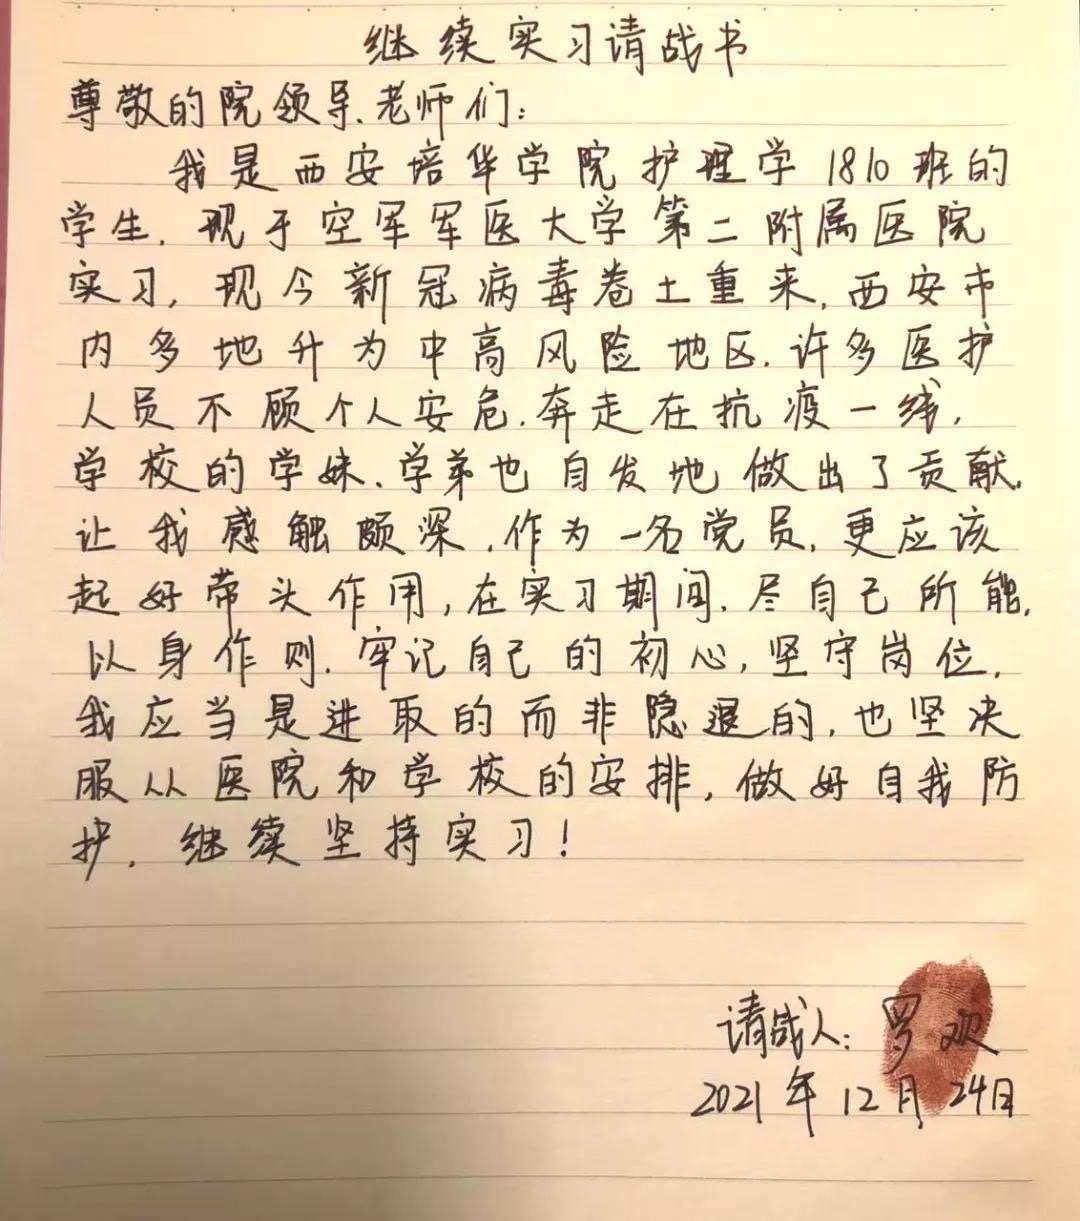 继续实习请战书
尊敬的院领导、老师们：
我是西安培华学院护理学1810班的
学生，现于空军军医大学第二附属医院
实习，现今新冠病毒卷土重来，西安市
内多地升为中高风险地区，许多医护
人员不顾个人安危，奔走在抗疫一线，
学校的学妹、学弟也自发地做出了贡献，
让我感触颇深，作为一名党员，更应该
起好带头作用，在实习期间，尽自己所能，
以身作则，牢记自己的初心，坚守岗位，
我应当是进取的而非隐退的，也坚决
服从医院和学校的安排，做好自我防
护，继续坚持实习！
请战人：罗欢
2021年12月24日